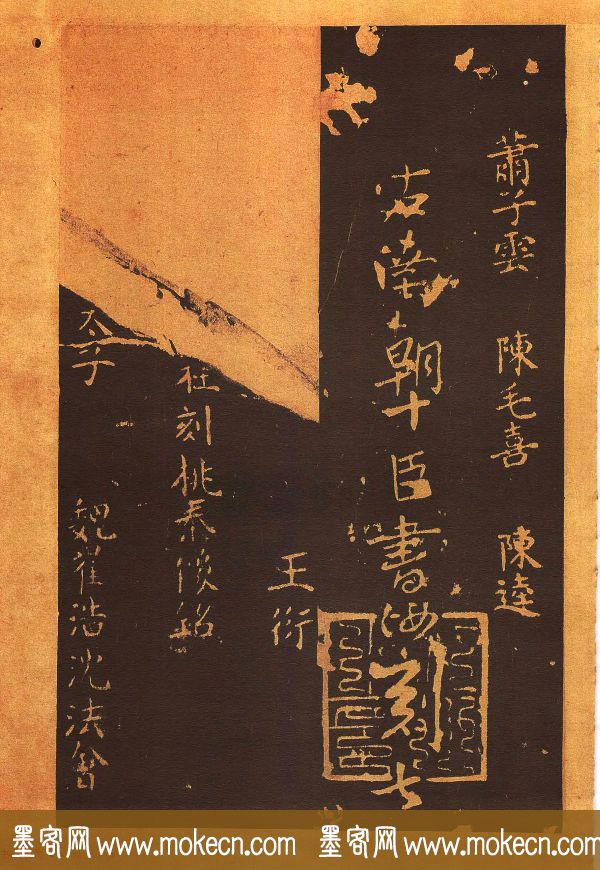 蕭子雲 陳毛喜 陳逵
右南朝十臣書汝刻七
王衍
刻桃
太子 魏崔浩沈法會
墨客网 www.mokecn.com 墨客网 www.mokecn.com